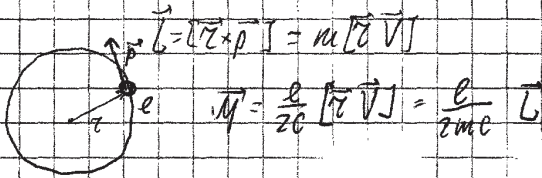 L⃗ = [r⃗ × p⃗] = m[r⃗ V⃗]
p⃗
e
r
M⃗ = e/2c [r⃗ V⃗] = e/2mc L⃗